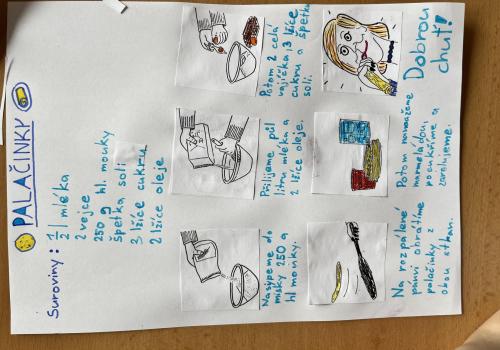 PALAČINKY
Suroviny: ½ l mléka
2 vejce
250 g hl. mouky
špetka soli
3 lžíce cukru
2 lžíce oleje
Nasypeme do
misky 250 g
hl mouky.
Přilijeme půl
litru mléka a
2 lžíce oleje.
Potom 2 celá
vajíčka, 3 lžíce
cukru a špetka
soli.
Na rozpálené
pánvi obrátíme
palačinky z
obou stran.
Potom namažeme
marmeládou,
pocukříme a
zarolujeme.
Dobrou
chuť!